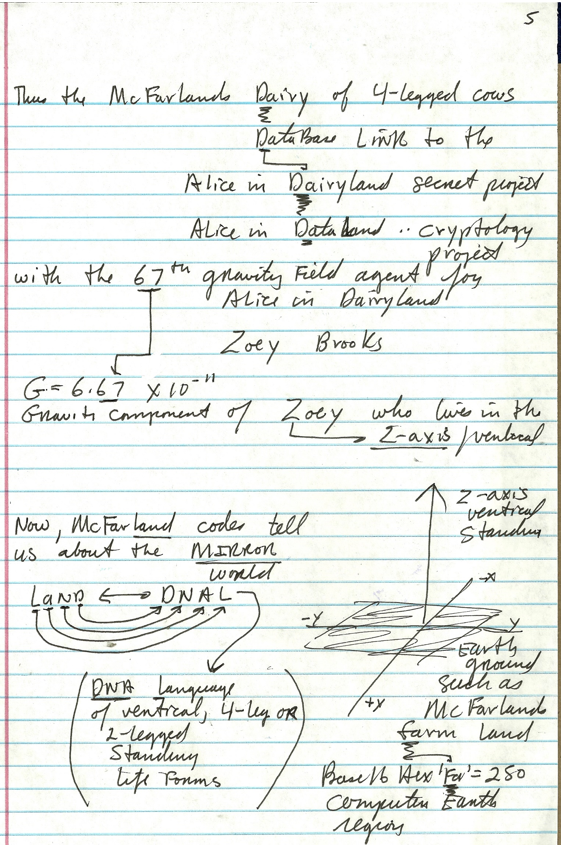 5
Thus the McFarlands Dairy of 4-legged cows
DataBase Link to the
Alice in Dairyland secret project
Alice in Dataland .. cryptology
project
with the 67th gravity Field agent for
Alice in Dairyland
Zoey Brooks
G = 6.67 x 10-11
Graviti component of Zoey who lives in the
Z-axis / ventical
Z-axis
ventical
Standing
-x
Now, McFarland codes tell
us about the MIRROR
world
LaND ⟷ DNAL
-Y
Y
Earth
ground
such as
McFarlands
farm land
+x
(DNA Language
of ventical, 4-leg or
2-legged
Standing
Life Forms)
Base 16 Hex 'Fa' = 250
computer Earth
region